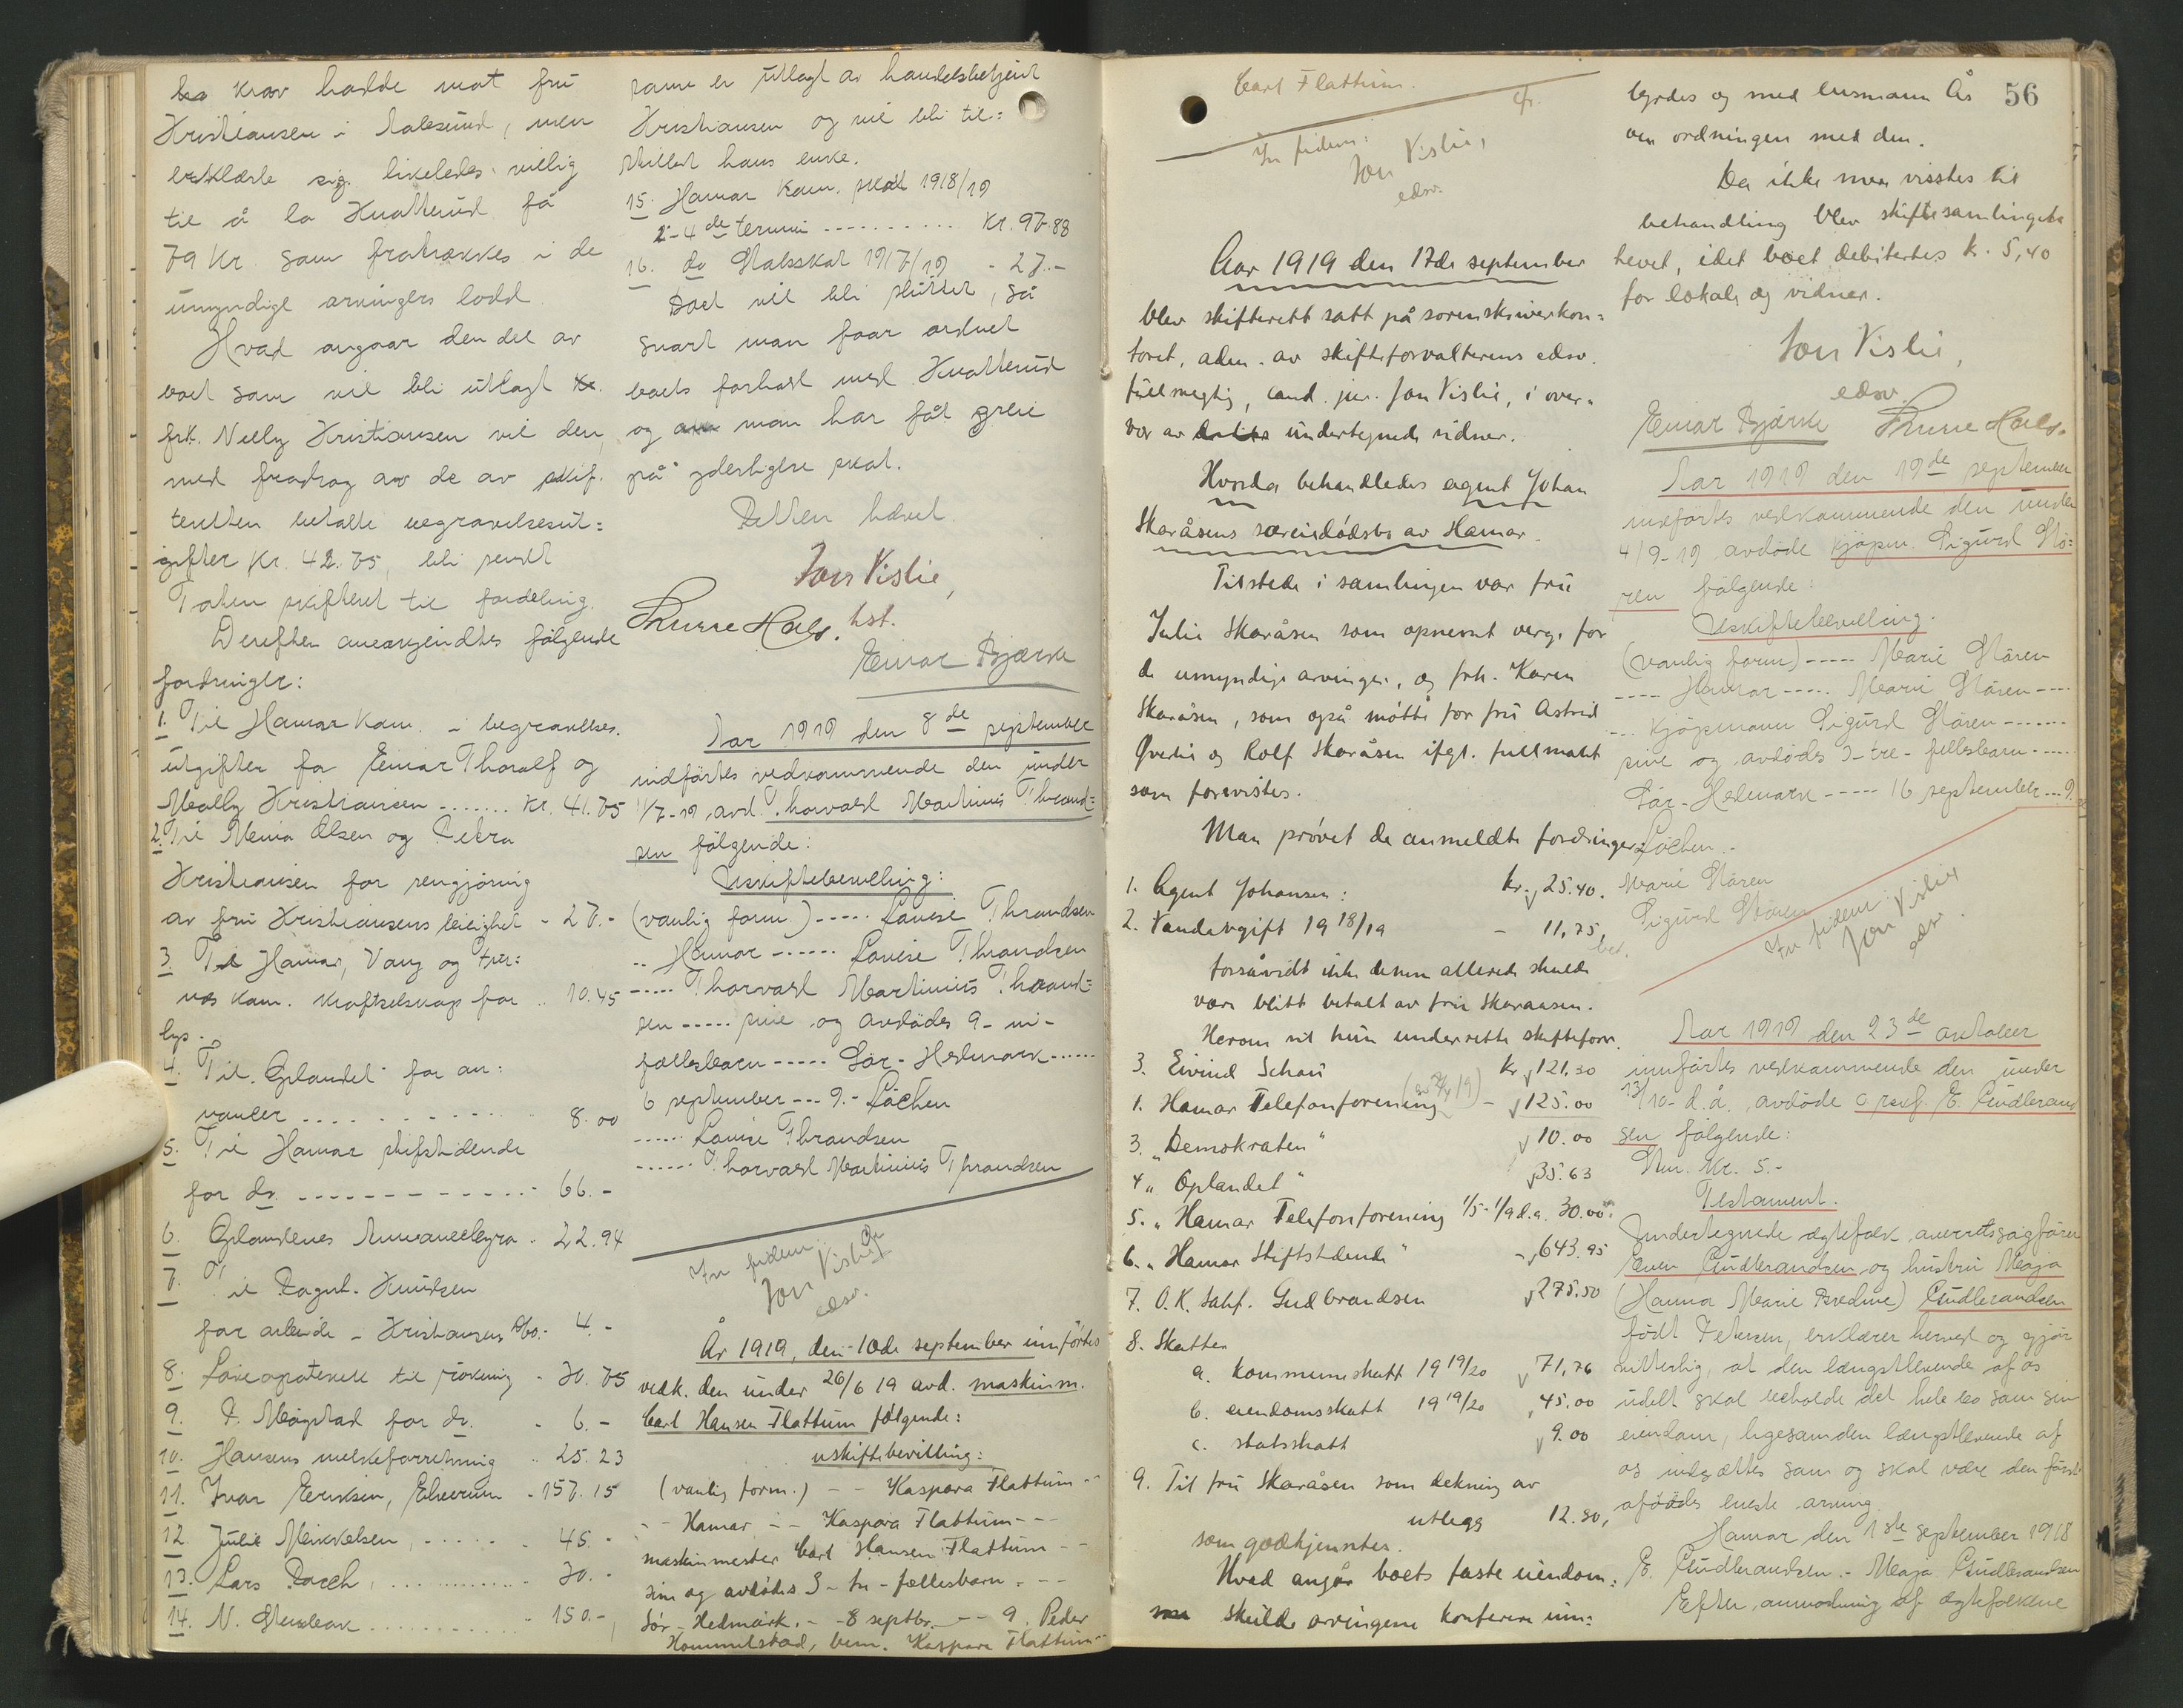 krav hadde mot fru
Kristiansen i Aalesund, men
erklærte sig likeledes villig
til å la Knatterud få
79 Kr. som fratrækkes i de
umyndige arvingers lodd.
Hvad angaar den del av
boet som vil bli utlagt
frk. Nelly Kristiansen vil den,
med fradrag av de av skif-
teretten betalte begravelsesut=
gifter Kr. 42.75, bli sendt
Toten skifteret til fordeling.
Derefter anerkjendtes følgende
fordringer:
1. Til Hamar Kom. - begravelses-
utgifter for Einar Thoralf og
Mally Kristiansen ....... Kr. 41.75
2. Til Menia Olsen og Petra
Kristiansen for rengjøring
av fru Kristiansens leilighet - 27.-
3. Til Hamar, Vang og Fur=
nes kom. kraftselskap for .. 10.45
lys.
4. Til Oplandet for an:
noncer ........... 8.00
5. Til Hamar stiftstidende
for do. ------------ 66.-
6. Oplandenes Annoncebyra - 22.94
7. Til Ragnh. Knudsen
for arbeide - Kristiansens bo.- 4.-
8. Løveapoteket til røkning - 30.75
9. P. Mogstad for do. - 6.-
10. Hansens melkeforretning .. 25.23
11. Ivar Eriksen, Elverum - 157.15
12. Julie Mikkelsen, ..... - 45.-
13. Lars Bach, ........... - 30.-
14. N. Stenbæk ........... - 150.-,
same er utlagt av handelsbetjent
Kristiansen og vil bli til=
stillet hans enke.
15. Hamar Kom. skat 1918/19
2-4de termin .......... Kr. 97.88
16. do Statsskat 1917/19 - 27.-
Boet vil bli sluttet, så
snart man faar ordnet
boets forhold med Knatterud
og man har fåt greie
på yderligere skat.
Retten hævet.
Jon Vislie,
hst.
Thune Hals.
Einar Bjærke
Aar 1919 den 8de september
indførtes vedkommende den under
1/7-19 avd. Thorvald Martinius Thrand=
sen følgende:
Uskiftebevilling:
(vanlig form.) ----- Lovise Thrandsen
.. Hamar ------ Lovise Thrandsen
----- Thorvald Martinius Thrand=
sen ----- sine og avdødes 9 - ni -
fællesbarn ----- Sør-Hedmark ------
6 september --- 9.- Løchen
----- Lovise Thrandsen
------ Thorvald Martinius Thrandsen
In fidem:
Jon Vislie
edsv.
År 1919, den 10de september innførtes
vedk. den under 26/6 19 avd. maskinm.
Carl Hansen Flattum følgende:
uskiftebevilling:
(vanlig form.) -- Kaspara Flattum --
-- Hamar -- Kaspara Flattum ---
maskinmester Carl Hansen Flattum --
sin og avdødes 3 - tre - fellesbarn. ---
Sør-Hedmark. - - 8 septbr. -- 9. Peder
Hommelstad, bem. Kaspara Flattum --
Carl Flattum.
In fidem:
Jon Vislie,
edsv.
Aar 1919 den 17de september
blev skifterett satt på sorenskriverkon=
toret, adm. av skifteforvalterens edsv.
fullmegtig, cand. jur. Jon Vislie, i over=
vær av undertegnede vidner.
Hvorda behandledes agent Johan
Skaråsens særeiedødsbo av Hamar.
Tilstede i samlingen var fru
Julie Skaråsen som opnevnt verge for
de umyndige arvinger, og frk. Karen
Skaråsen, som også møtte for fru Astrid
Øverlie og Rolf Skaråsen ifgl. fullmakt
som forevistes.
Man prøvet de anmeldte fordringer:
1. Agent Johansen: kr. 25.40.
2. Vandavgift 1918/19 - 11,75, bet.
forsåvidt ikke denne allerede skulde
være blitt betalt av fru Skaraasen.
Herom vil hun underrette skifteforv.
3. Eivind Schou kr. 121.30
1. Hamar Telefonforening - 125.00
3. "Demokraten" 10.00
4 "Oplandet" 35.63
5. "Hamar Telefonforening 1/5-1/9 d.a. 30.00
6. "Hamar Stiftstidende" - 643.95
7. O.K. Sahf. Gudbrandsen 275.50
8. Skatter
a. kommuneskatt 1919/20 71,76
b. eiendomsskatt 1919/20 45,00
c. statsskatt 9.00
9. Til fru Skaråsen som dekning av
utlegg 12.80,
som godkjenntes.
Hvad angår boets faste eiendom=
skulde arvingene konferere inn=
56
byrdes og med lensmann Ås
om ordningen med den.
Da ikke mere visstes til
behandling blev skiftesamlingen
hevet, idet boet debitertes k. 5,40
for lokale og vidner.
Jon Vislie,
edsv.
Einar Bjærke Thune Hals.
Aar 1919 den 19de september
innførtes vedkommende den under
4/9-19 avdøde kjøpm. Sigurd Stø=
ren følgende:
Uskiftebevilling.
(vanlig form) ----- Marie Støren
---- Hamar ----- Marie Støren ----
--- Kjøpmann Sigurd Støren -------
sine og avdødes 3 - tre - fellesbarn -----
Sør-Hedmark ----- 16 september --- 9.
Løchen.-
Marie Støren
Sigurd Støren
In fidem:
Jon Vislie
edsv.
Aar 1919 den 23de oktober
innførtes vedkommende den under
13/10- d.å. avdøde o.rsakf. E. Gudbrand
sen følgende:
Stm. Kr. 5.-
Testament.
Undertegnede ægtefolk, overretssagfører
Even Gudbrandsen og hustru Maja
(Hanna Marie Bredine) Gudbrandsen
født Petersen, erklærer herved og gjør
vitterlig, at den længstlevende af os
udelt skal beholde det hele bo som sin
eiendom, ligesom den længstlevende af
os indsættes som og skal være den først
afdødes eneste arving.
Hamar den 1ste september 1918
E. Gudbrandsen.- Maja Gudbrandsen
Efter anmodning af ægtefolkene